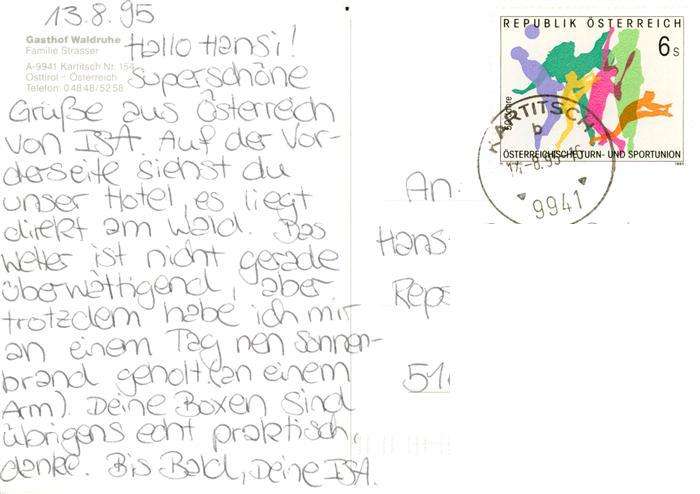 13.8.95
Gasthof Waldruhe
Familie Strasser
A-9941 Kartitsch Nr. 154
Osttirol - Österreich
Telefon 04848/5258
Hallo Hansi!
superschöne
Grüße aus Österreich
von ISA. Auf der Vor-
derseite siehst du
unser Hotel, es liegt
direkt am Wald. Das
Wetter ist nicht gerade
überwältigend, aber
trotzdem habe ich mir
an einem Tag nen Sonnen-
brand geholt (an einem
Arm). Deine Boxen sind
übrigens echt praktisch,
danke. Bis Bald, Deine ISA.
REPUBLIK ÖSTERREICH
6 S
ÖSTERREICHISCHE TURN- UND SPORTUNION
KARTITSCH
b
9941
An:
Hans
Reps
51